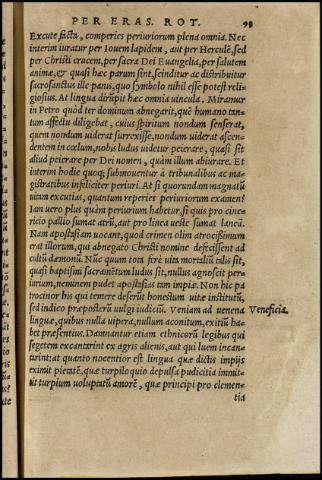 PER ERAS. ROT. 98
Excute facta, comperies periuriorum plena omnia. Nec
interim iuratur per Iouem lapidem, aut per Herculē, sed
per Christi crucem, per sacra Dei Euangelia, per salutem
animæ, & quasi hæc parum sint, scinditur ac distribuitur
sacrosanctus ille panis, quo symbolo nihil esse potest reli
giosius. At lingua dirūpit hæc omnia uincula. Miramur
in Petro quòd ter dominum abnegarit, quē humano tan
tum affectu diligebat, cuius spiritum nondum senserat,
quem nondum uiderat surrexisse, nondum uiderat ascen
dentem in cœlum, nobis ludus uidetur peierare, quasi sit
aliud peierare per Dei nomen, quàm illum abiurare. Et
interim hodie quoq; submouentur à tribunalibus ac ma
gistratibus infeliciter periuri. At si quorundam magnatū
uitam excutias, quantum reperies periuriorum examen?
Iam uero plus quàm periurium habetur, si quis pro cine
ricio pallio sumat atrū, aut pro linea ueste sumat laneā.
Nam apostasiam uocant, quod crimen olim atrocißimum
erat illorum, qui abnegato Christi nomine defecissent ad
cultū dæmonū. Nūc quum tota ferè uita mortaliū talis sit,
quasi baptismi sacramētum ludus sit, nullus agnoscit per
iurium, neminem pudet apostasias tam impiæ. Non hic pa
trocinor his qui temere deserūt honestum uitæ institutū,
sed indico præposterū uulgi iudiciū. Veniam ad uenena Veneficia.
linguæ, quibus nulla uipera, nullum aconitum, exitiū ha
bet præsentius. Damnantur etiam ethnicorū legibus qui
segetem excantarint ex agris alienis, aut qui luem incan
tarint: at quanto nocentior est lingua quæ dictis impijs
eximit pietatē, quæ turpiloquio depulsa pudicitia immit
tit turpium uoluptatū amorē, quæ principi pro clemen-
tia